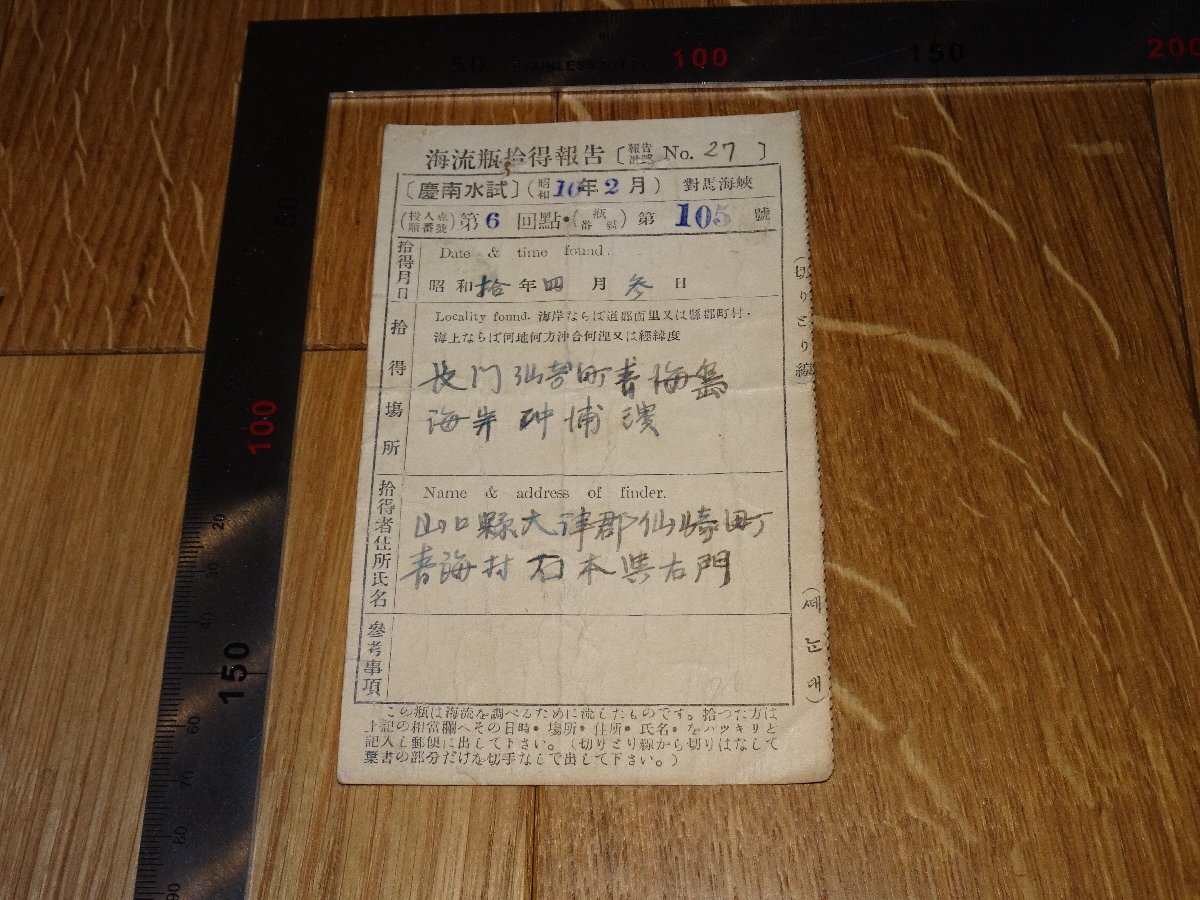 50 STAINLESS STEEL 100 150 200
海流瓶拾得報告〔報告番號 No. 27 〕
〔慶南水試〕(昭和10年2月) 對馬海峽
(投入点順番號)第6回點・(瓶番號)第105號
拾得月日
Date & time found.
昭和拾年四月参日
拾得場所
Locality found. 海岸ならば道郡面里又は縣郡町村・
海上ならば何地何方沖合何浬又は經緯度
長門仙崎町青海島
海岸 砕浦濱
拾得者住所氏名
Name & address of finder.
山口縣大津郡仙崎町
青海村 石本 右門
參考事項
この瓶は海流を調べるために流したものです。拾つた方は
上記の相當欄へその日時・場所・住所・氏名・をハツキリと
記入し郵便に出して下さい。(切りとり線から切りはなして
葉書の部分だけを切手なしで出して下さい。)
(切りとり線)
50
100
150
20
30
40
60
70
80
90